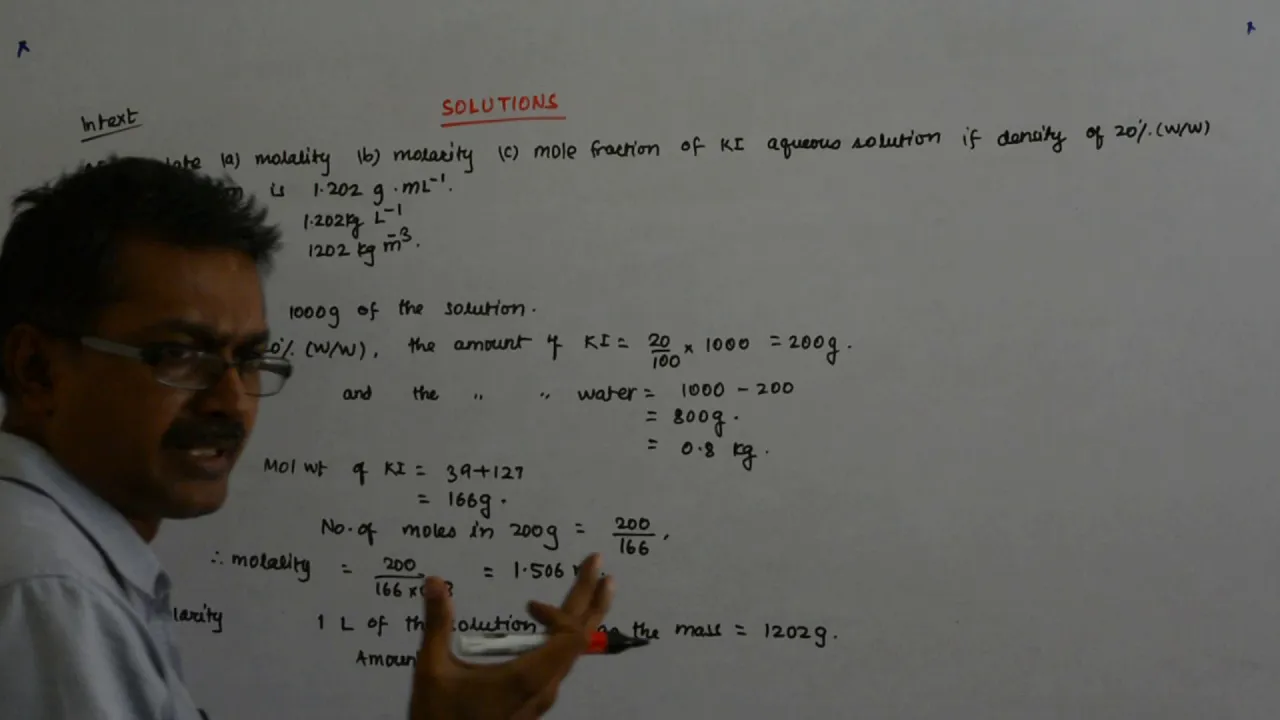 Intext
SOLUTIONS
(a) molality (b) molarity (c) mole fraction of KI aqueous solution if density of 20%. (W/W)
is 1.202 g.mL⁻¹.
1.202kg L⁻¹
1202 kg m⁻³.
1000g of the solution.
%. (W/W), the amount of KI = 20/100 × 1000 = 200g.
and the " " water = 1000 - 200
= 800g.
= 0.8 kg.
Mol wt of KI = 39+127
= 166g.
No. of moles in 200g = 200/166,
∴ molality = 200/166 × = 1.506
1 L of the solution the mass = 1202g.